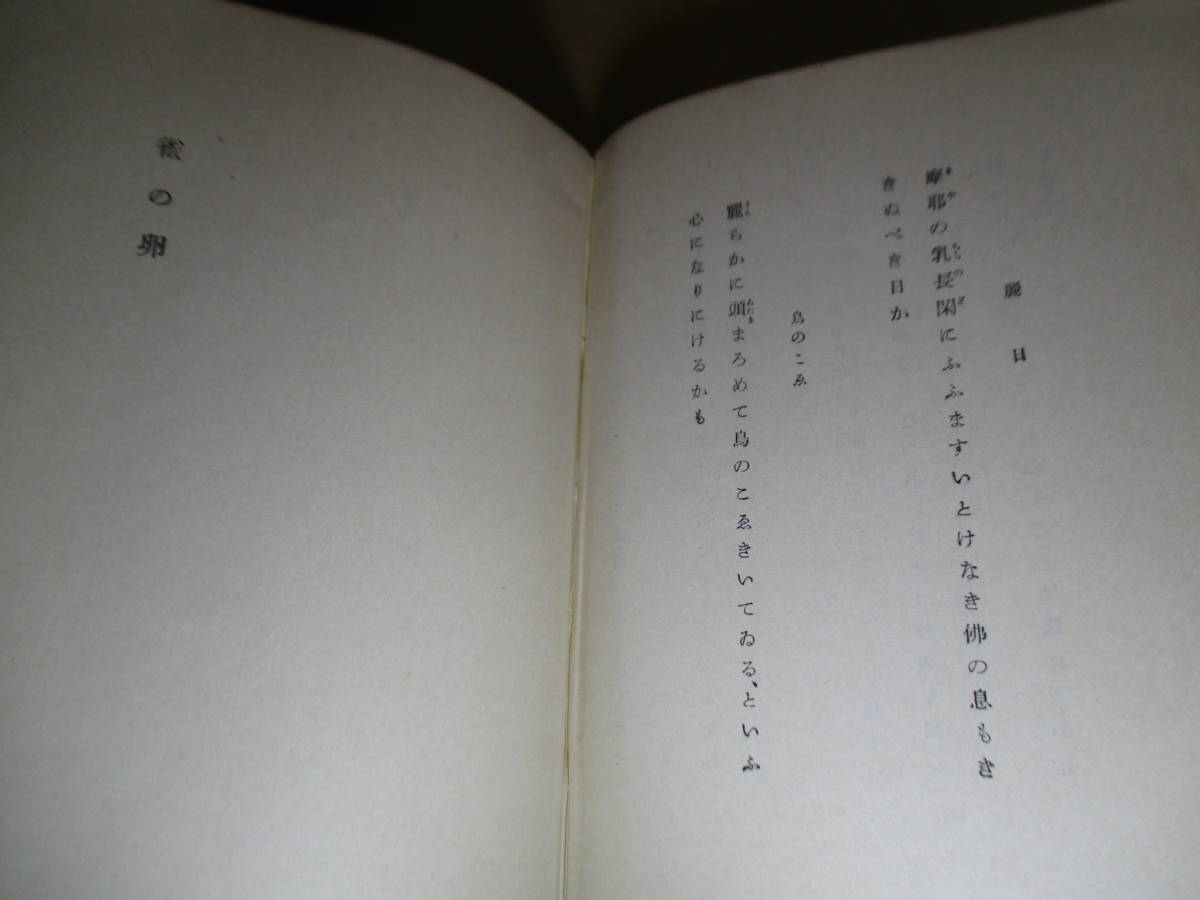 麗日
摩耶の乳長閑にふふますいとけなき佛の息もき
きぬべき日か
鳥のこゑ
麗らかに頭まろめて鳥のこゑきいてゐる、といふ
心になりにけるかも
雀の卵